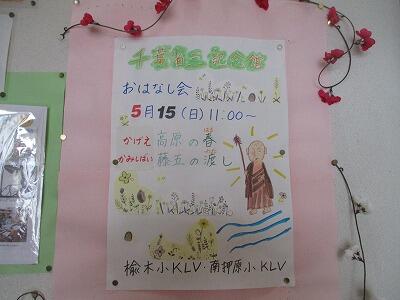 千葉省三記念館
おはなし会
5月15(日)11:00~
かげえ 高原の春
はる
かみしばい 藤五の渡し
わた
楡木小KLV・南押原小KLV